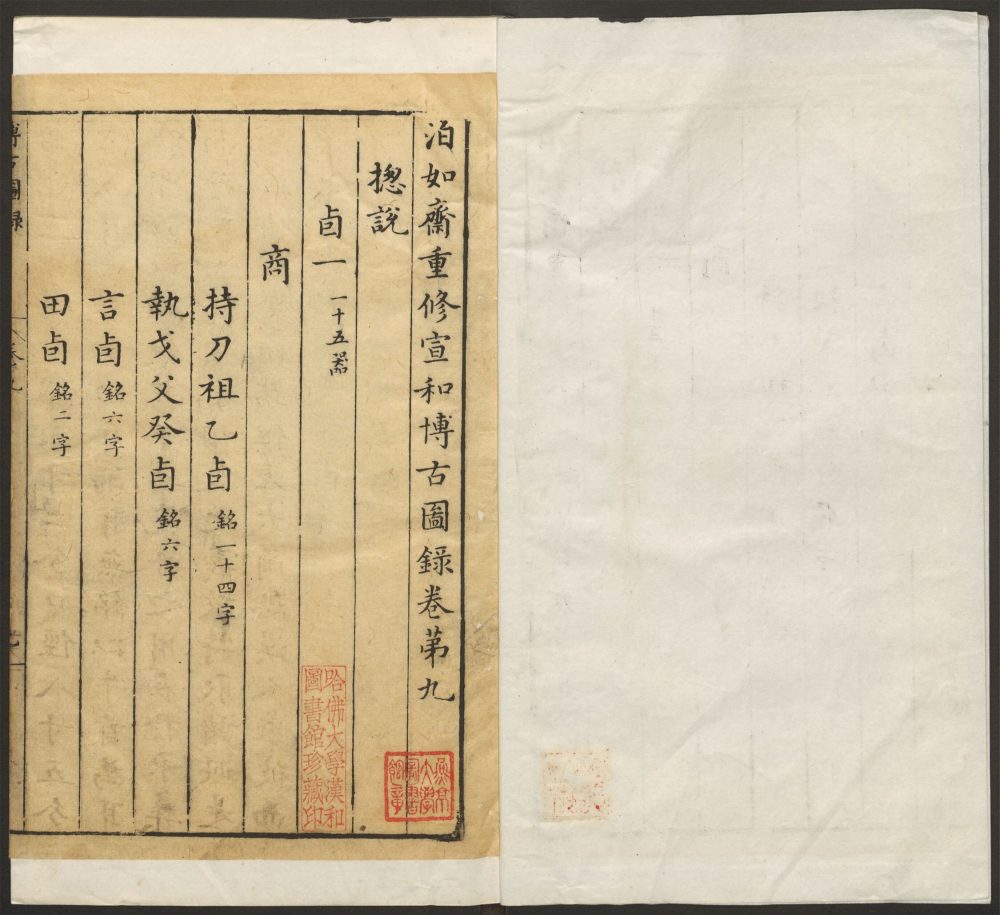 泊如齋重修宣和博古圖錄卷第九
揔說
卣一 一十五器
商
持刀祖乙卣 銘一十四字
執戈父癸卣 銘六字
言卣 銘六字
田卣 銘二字
博古圖錄
卷九
哈佛大學漢和
圖書館珍藏印